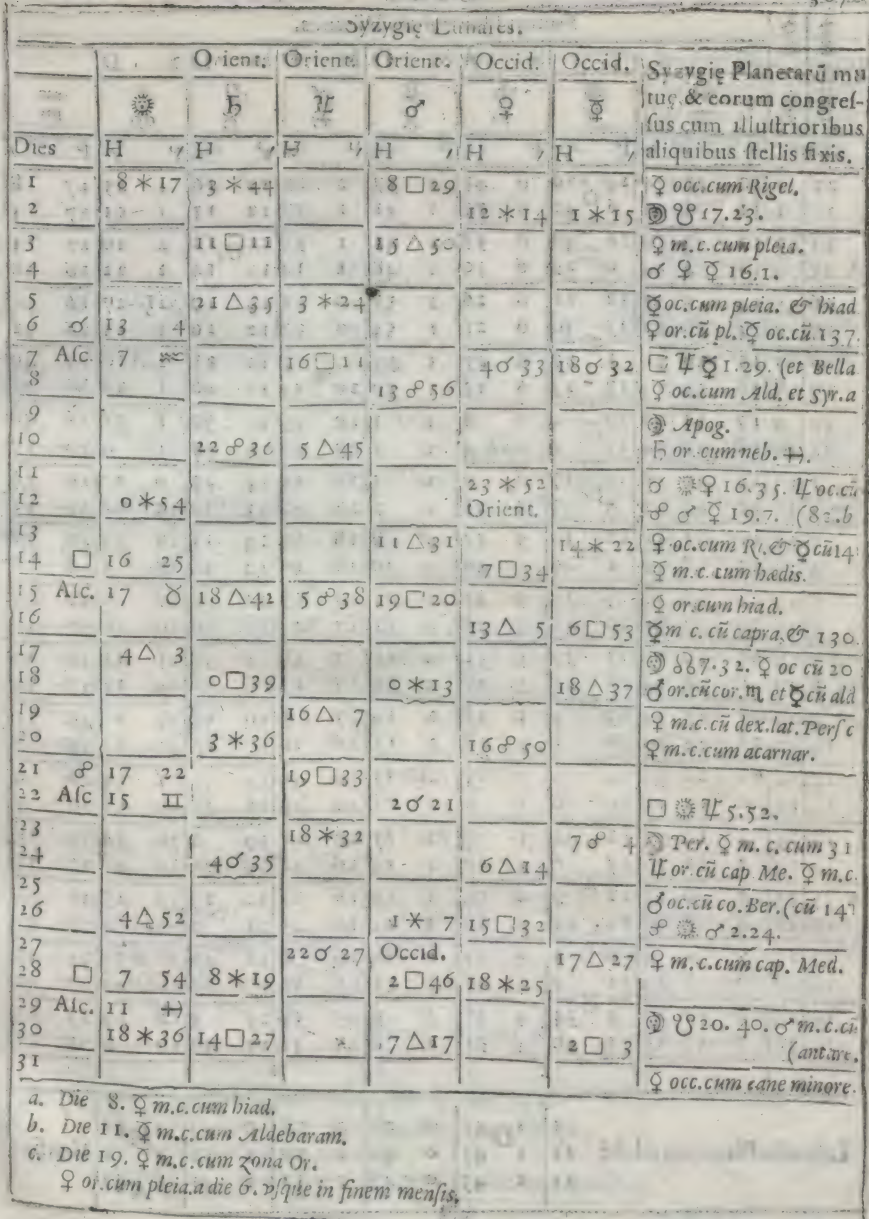 Syzygię Lunares.
Orient. Orient. Orient. Occid. Occid. Syzygię Planetarū mu
☼ ♄ ♃ ♂ ♀ ☿ tuę & eorum congres-
sus cum illustrioribus
Dies H ′ H ′ H ′ H ′ H ′ H ′ aliquibus stellis fixis.
1 8 ⚹ 17 3 ⚹ 44 8 □ 29 ☿ occ.cum Rigel.
2 12 ⚹ 14 1 ⚹ 15 ☽ ☋ 17.23.
3 11 □ 11 15 △ 50 ♀ m.c.cum pleia.
4 ☌ ♀ ☿ 16.1.
5 21 △ 35 3 ⚹ 24 ☿ oc.cum pleia. & hiad
6 ☌ 13 4 ♀ or.cū pl. ☿ oc.cū 137.
7 Asc. 7 ♒ 16 □ 11 4 ☌ 33 18 ☌ 32 □ ♃ ☿ 1.29. (et Bella
8 13 ☍ 56 ☿ oc.cum Ald. et syr.a
9 ☽ Apog.
10 22 ☍ 36 5 △ 45 ♄ or.cum neb. ♐.
11 23 ⚹ 52 ☌ ☼ ♀ 16.35. ♃ oc.cū
12 0 ⚹ 54 Orient. ☍ ♂ ☿ 19.7. (82.b
13 11 △ 31 14 ⚹ 22 ♀ oc.cum Ri.& ☿ cū 14
14 □ 16 25 7 □ 34 ☿ m.c.cum hædis.
15 Asc. 17 ♉ 18 △ 42 5 ☍ 38 19 □ 20 ♀ or.cum hiad.
16 13 △ 5 6 □ 53 ☿ m c. cū capra.& 130.
17 4 △ 3 ☽ ☊ 7.32. ☿ oc cū 20
18 0 □ 39 0 ⚹ 13 18 △ 37 ♂ or.cū cor. ♏ et ☿ cū ald
19 16 △ 7 ♀ m.c.cū dex.lat.Pers c
20 3 ⚹ 36 16 ☍ 50 ♀ m.c.cum acarnar.
21 ☍ 17 22 19 □ 33
22 Asc 15 ♊ 2 ☌ 21 □ ☼ ♃ 5.52.
23 18 ⚹ 32 7 ☍ 4 ☽ Per. ☿ m. c. cum 31
24 4 ☌ 35 6 △ 14 ♃ or.cū cap Me. ☿ m.c.
25 ♂ oc.cū co.Ber.(cū 147
26 4 △ 52 1 ⚹ 7 15 □ 32 ☍ ☼ ♂ 2.24.
27 22 ☌ 27 Occid. 17 △ 27 ♀ m.c.cum cap. Med.
28 □ 7 54 8 ⚹ 19 2 □ 46 18 ⚹ 25
29 Asc. 11 ♐ ☽ ☋ 20. 40. ♂ m.c.cū
30 18 ⚹ 36 14 □ 27 7 △ 17 2 □ 3 (antare.
31 ☿ occ.cum cane minore.
a. Die 8. ☿ m.c.cum hiad.
b. Die 11. ☿ m.c.cum Aldebaram.
c. Die 19. ☿ m.c.cum zona Or.
♀ or.cum pleia.a die 6. vsque in finem mensis.